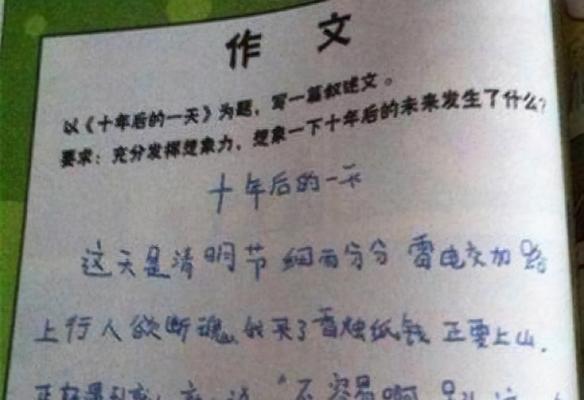 作 文
以《十年后的一天》为题，写一篇叙述文。
要求：充分发挥想象力，想象一下十年后的未来发生了什么？
十年后的一天
这天是清明节 细雨分分 雷电交加 路
上行人欲断魂 我买了香烛纸钱 正要上山，
不容易啊